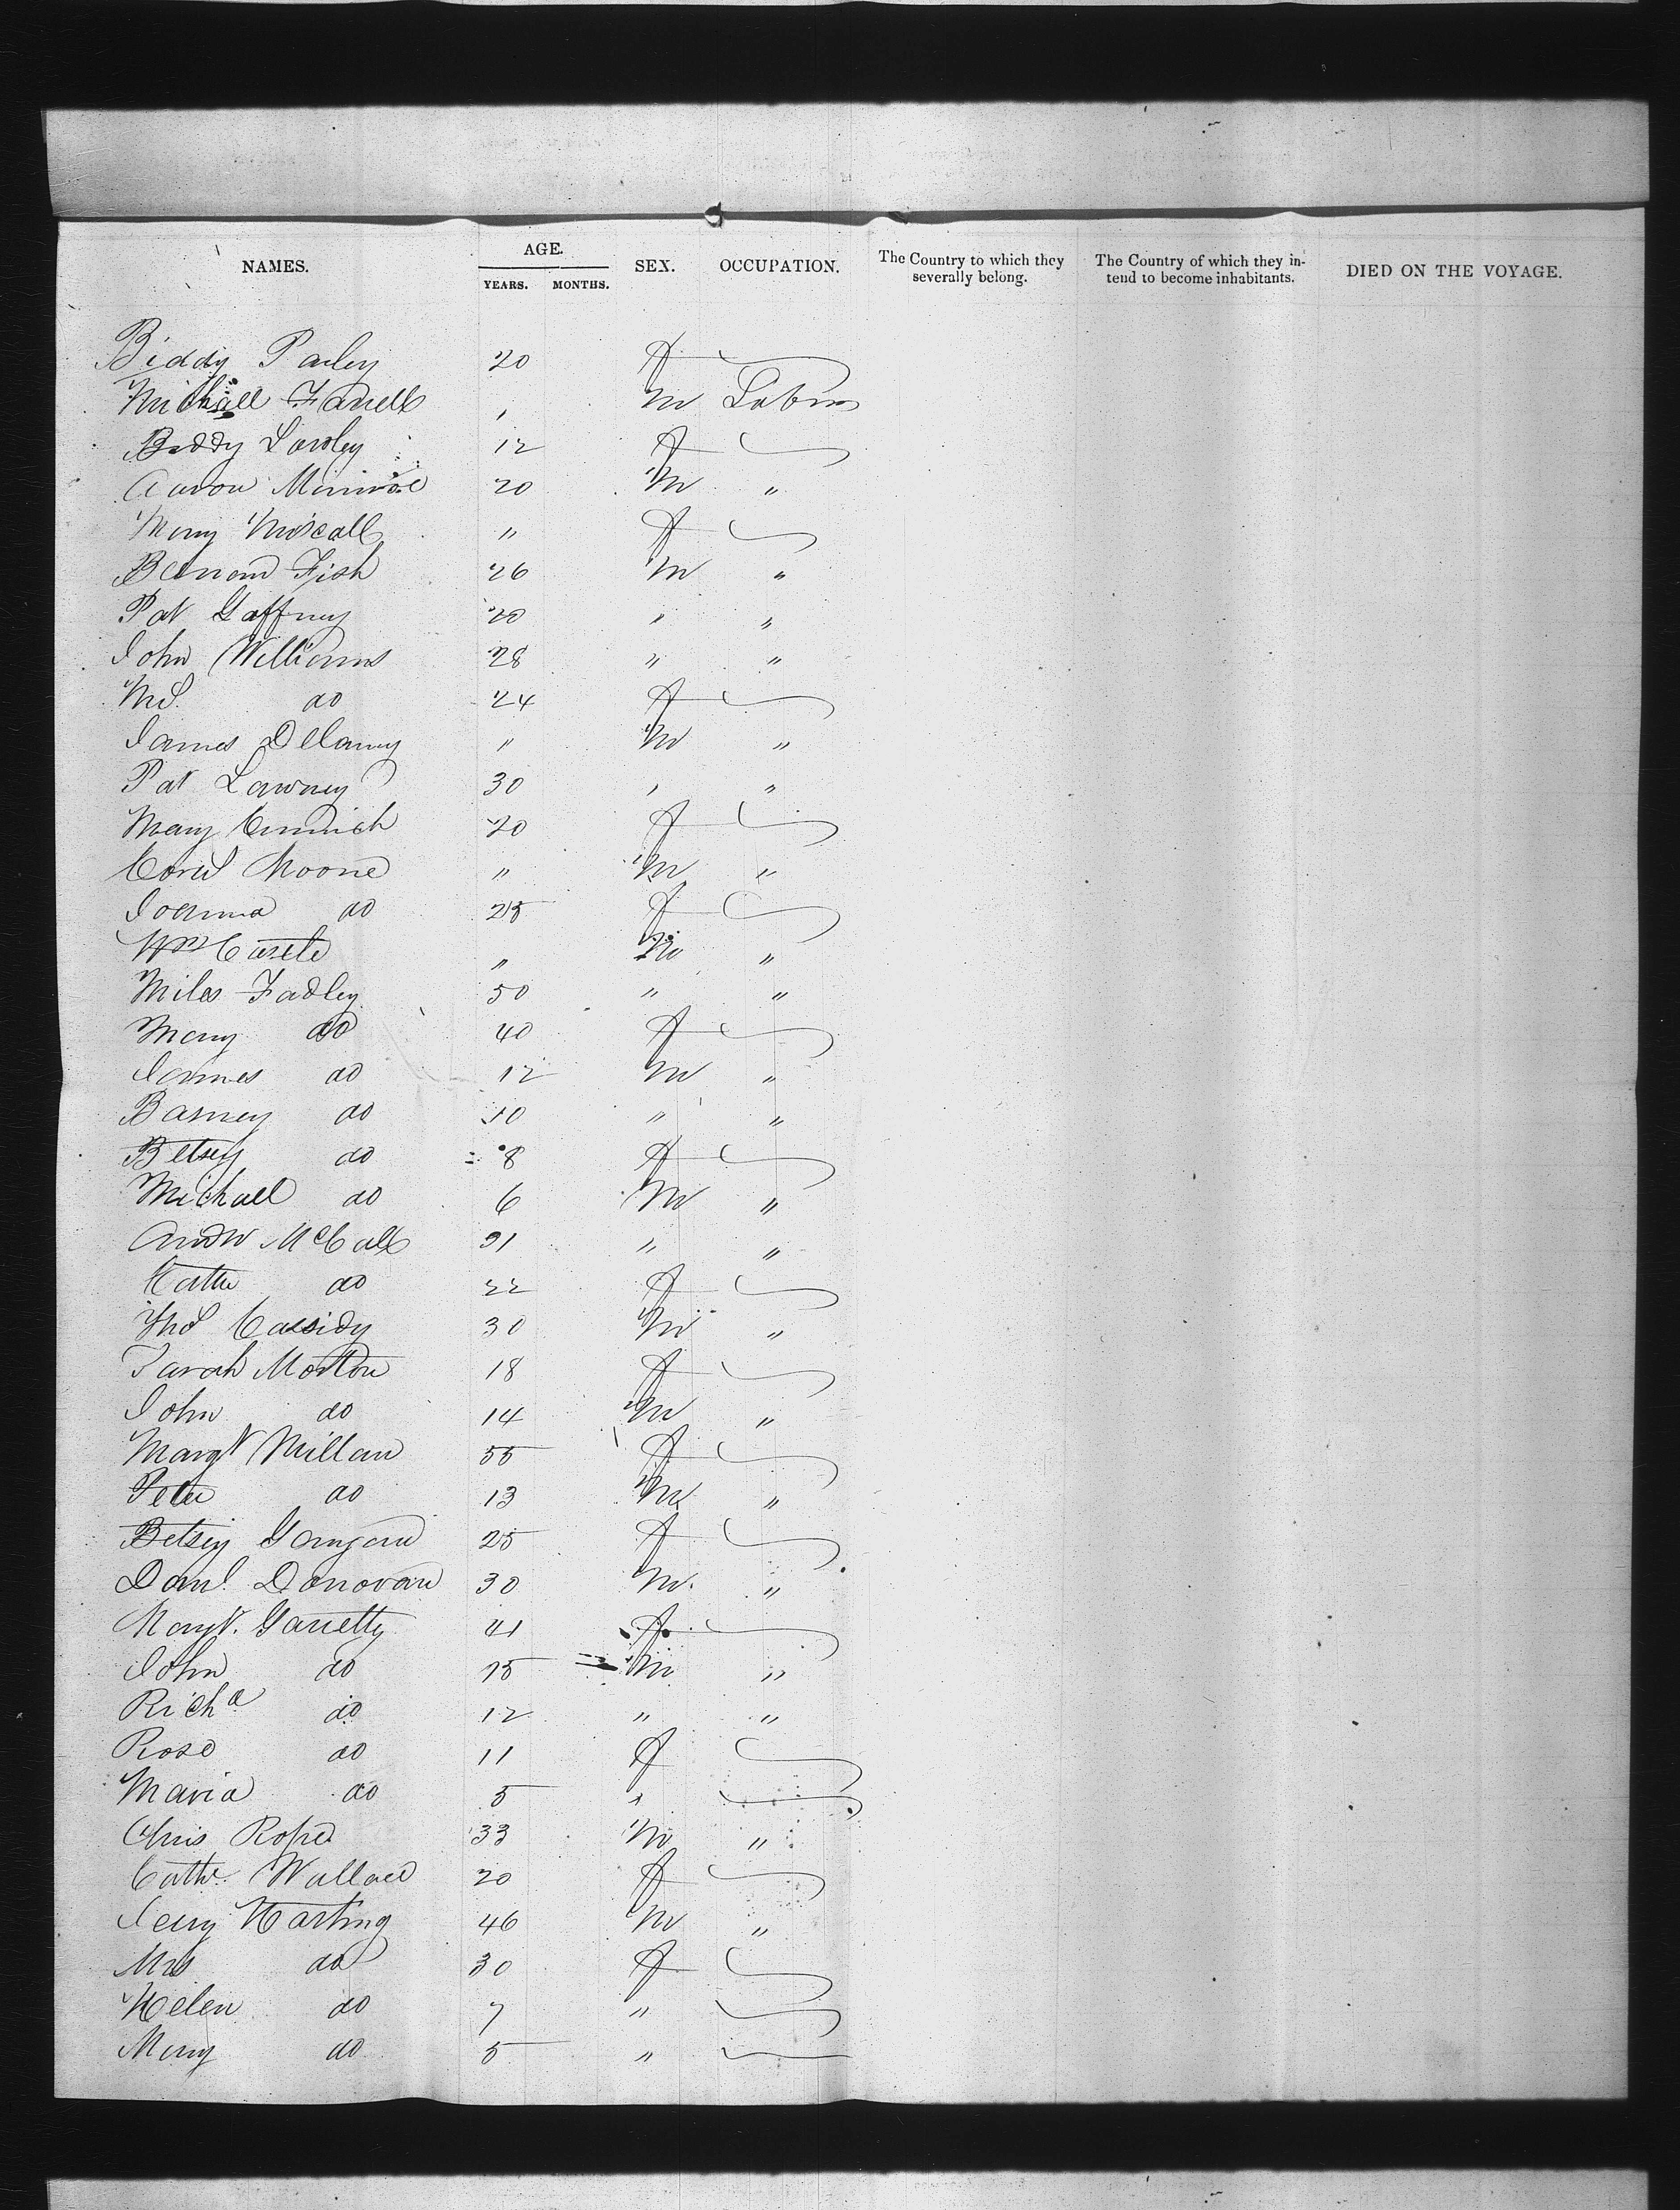 NAMES. AGE. YEARS. MONTHS. SEX. OCCUPATION. The Country to which they severally belong. The Country of which they in-tend to become inhabitants. DIED ON THE VOYAGE.
Biddy 20 F
Michael Farrell " M Labr
Biddy 12 F
Aaron Minnroe 20 M "
Mary " F
Fish 26 M "
Pat Gaffney 20 " "
John Williams 28 " "
do 24 F
James Delaney " M "
Pat Lawney 30 " "
Mary 20 F
Moore " M "
Joanna do 25 F
Wm " M "
Miles Fadley 50 " "
Mary do 40 F
James do 12 M "
Barney do 10 " "
Betsey do 8 F
Michael do 6 M "
Andw McCall 31 " "
Cathe do 22 F
Cassidy 30 M "
Sarah Morton 18 F
John do 14 M "
Margt Millan 55 F
Peter do 13 M "
Betsey 25 F
Danl. Donovan 30 M "
Margt. Garretty 41 F
John do 15 M "
Richd do 12 " "
Rose do 11 F
Maria do 5 "
Chris Roper 33 M "
Cathe. Wallace 20 F
Jerry Harting 46 M "
Mrs do 30 F
Helen do 7 "
Mary do 5 "